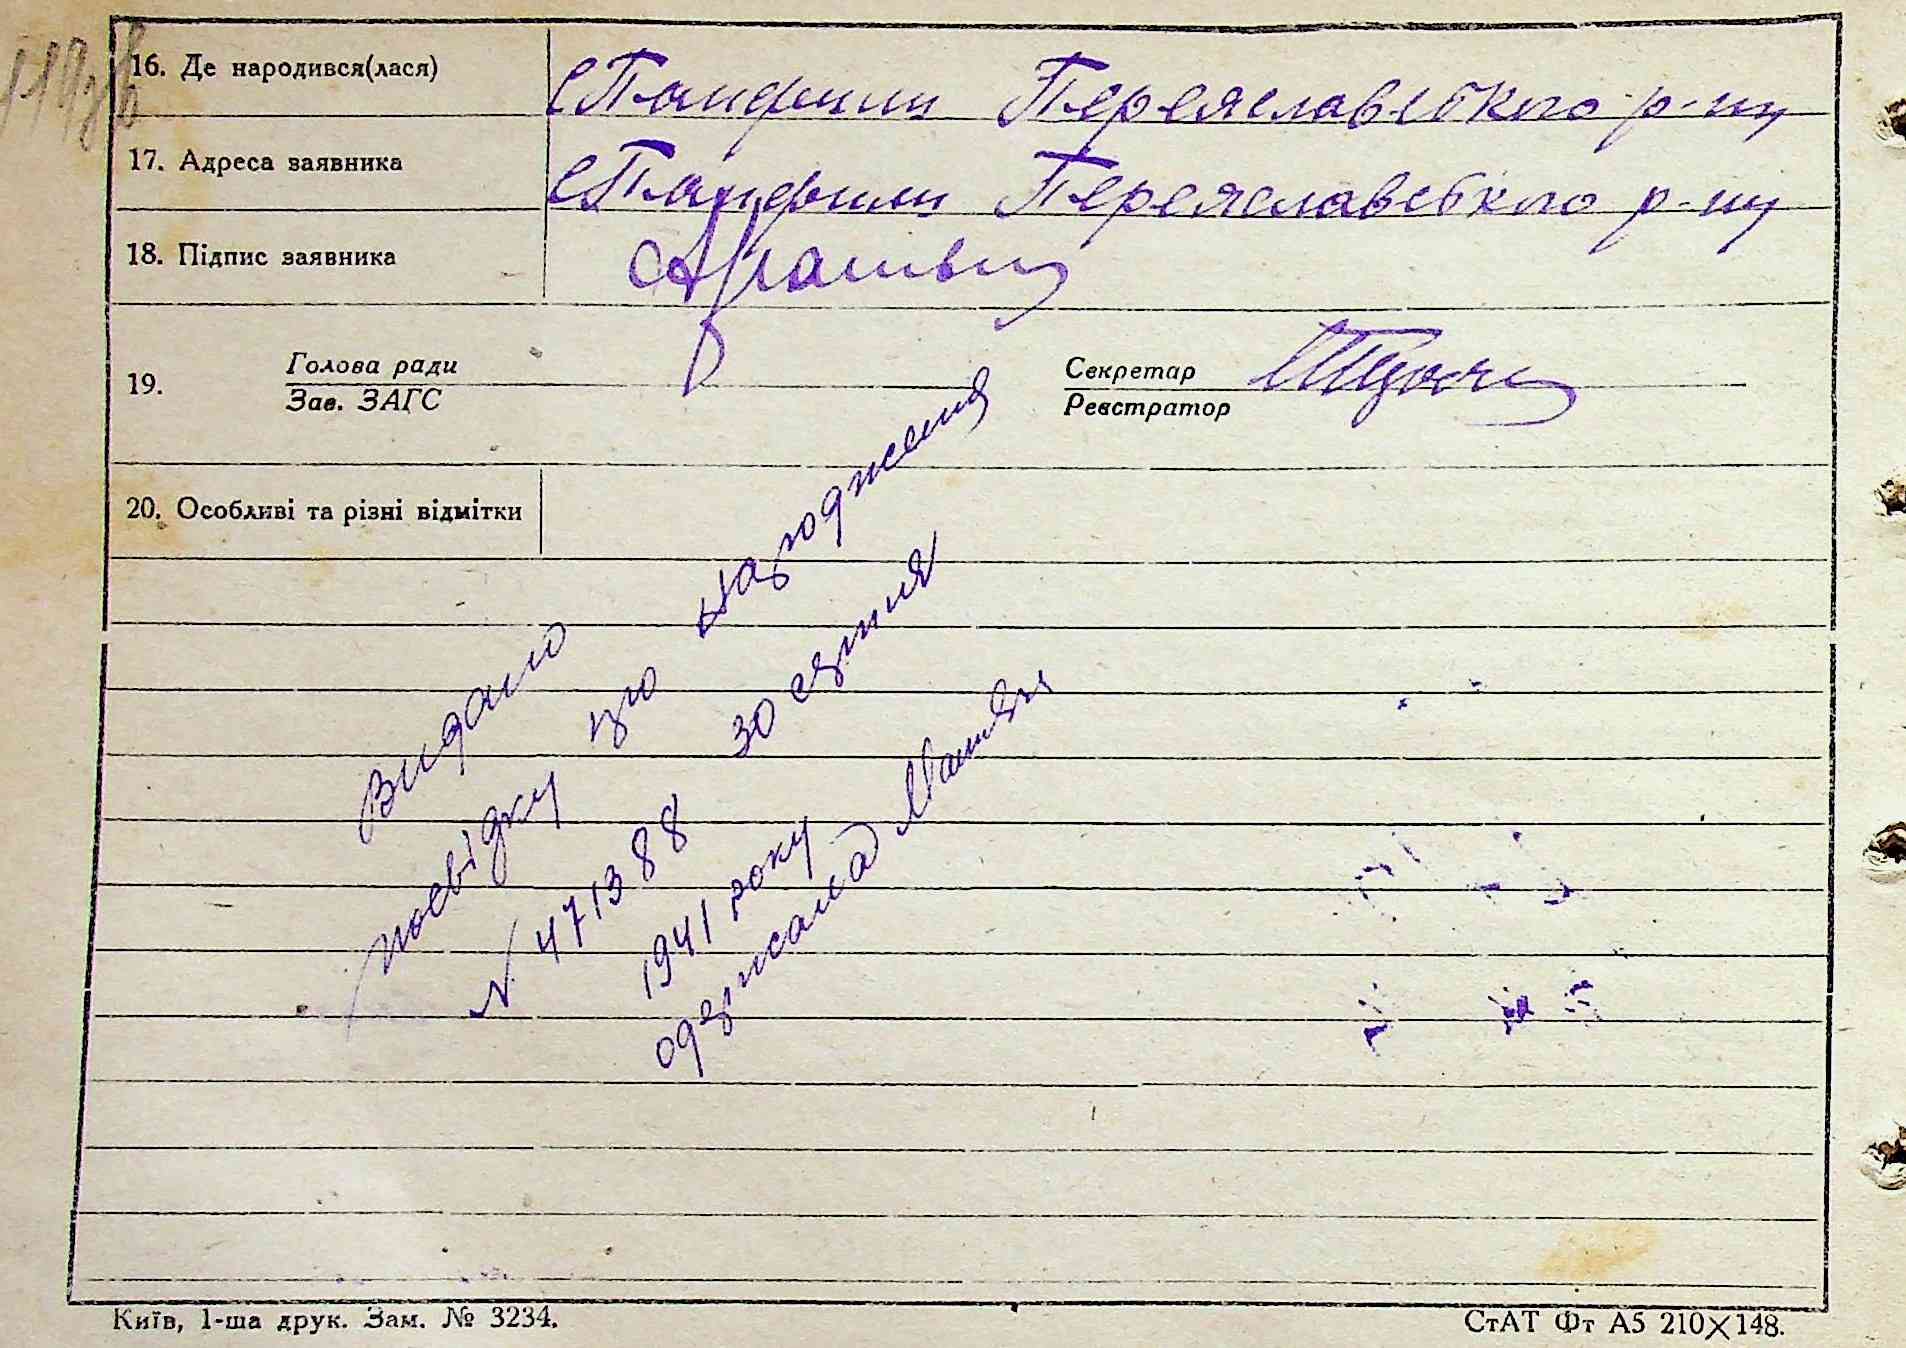 16. Де народився(лася)
с Панфили Переяславського р-ну
17. Адреса заявника
с Панфили Переяславського р-ну
18. Підпис заявника
19.
Голова ради
Зав. ЗАГС
Секретар
Реєстратор
20. Особливі та різні відмітки
Видано
посвідку про народження
N 471388 30 серпня
1941 року
одержала
Київ, 1-ша друк. Зам. № 3234.
СтАТ Фт А5 210×148.